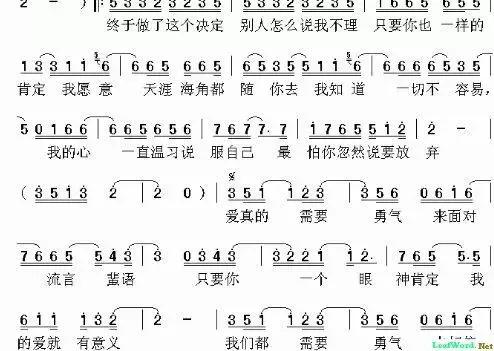 2 - 2 ) |: 5 3 3 2 3 2 3 2 | 5 3 3 2 3 2 3 | 5 3 3 2 3
终于做了这个决定 别人怎么说我不理 只要你也一样的
1 3 3 1 1 6 6 5 3 5 1 6 6 5 3 5 3 1 1 6 6 5 3 5
肯定 我愿意 天涯海角都 随你去我知道 一切不容易,
5 0 1 6 6 | 6 6 5 6 5 6 | 7 6 7 7. 7 | 6 7 6 5 5 1 2 |
我的心 一直温习说 服自己 最 怕你忽然说要放弃
( 3 5 1 3 2 - | 2 2 0 ) | 3 5 1 1 2 3 | 3 5 6 0 6 1 6 |
爱真的 需要 勇气 来面对
7 6 6 5 5 4 3 | 3 0 3 4 3 | 3 4 3 3 1 2. | 2 1 2 0 1 2
流言 蜚语 只要你 一个 眼 神肯定 我
| 6 1 6 6 3 2 | 2 - | 3 5 1 1 2 3 | 3 5 6 0 6 1 6 |
的爱就 有意义 我们都 需要 勇气
LeafWord.Net